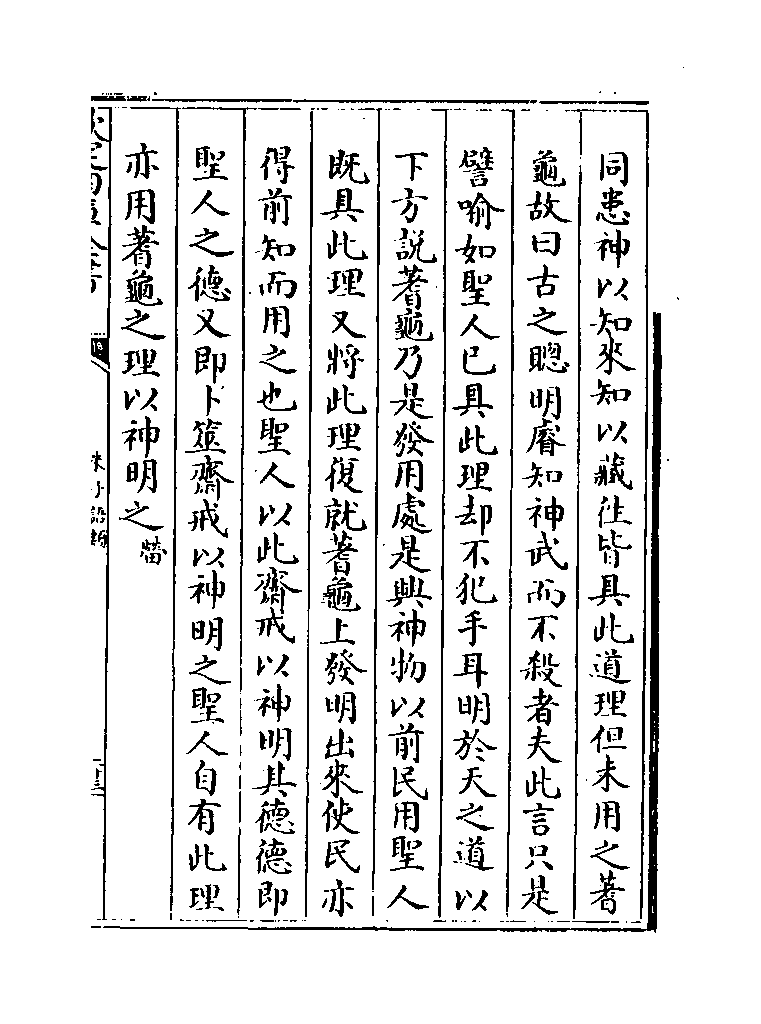 同患神以知來知以藏徃皆具此道理但未用之蓍
龜故曰古之聰明睿知神武而不殺者夫此言只是
譬喻如聖人已具此理却不犯手耳明於天之道以
下方説蓍龜乃是發用處是興神物以前民用聖人
既具此理又將此理復就蓍龜上發明出來使民亦
得前知而用之也聖人以此齋戒以神明其德德即
聖人之德又即卜筮齋戒以神明之聖人自有此理
亦用蓍龜之理以神明之 㽦
朱子語類